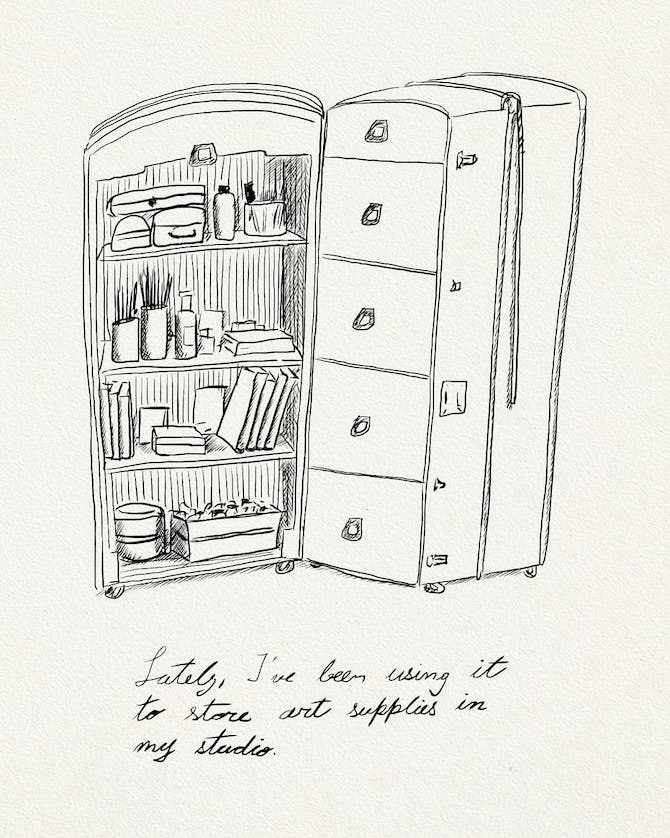 Lately, I've been using it
to store art supplies in
my studio.